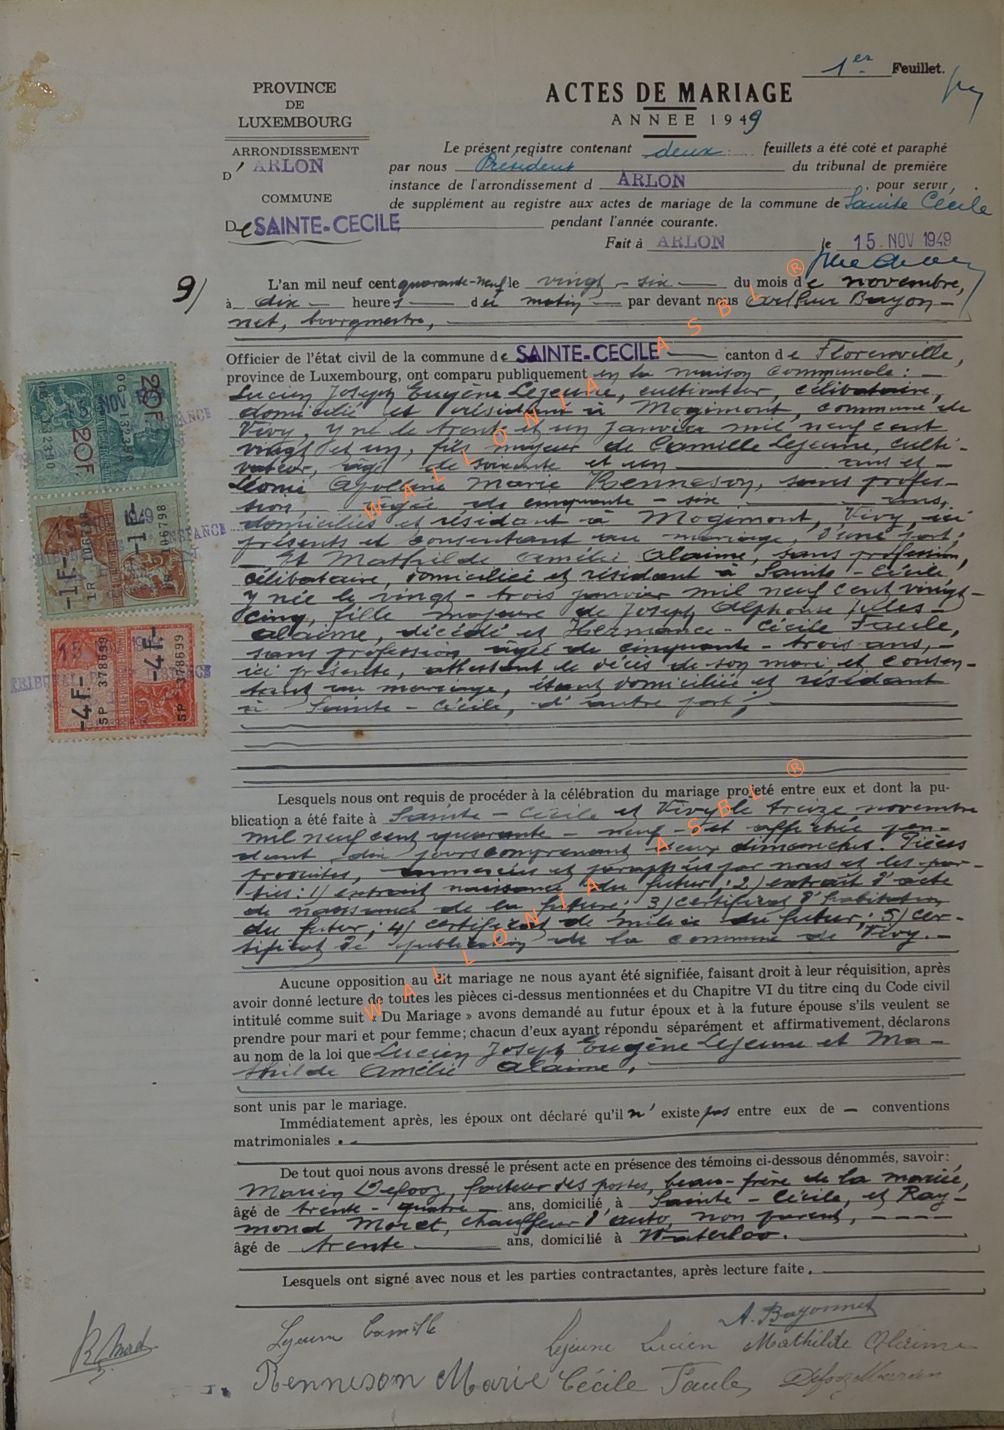 1er Feuillet.
PROVINCE
DE
LUXEMBOURG
ARRONDISSEMENT
D' ARLON
COMMUNE
De SAINTE-CECILE
ACTES DE MARIAGE
ANNEE 1949
Le présent registre contenant deux feuillets a été coté et paraphé
par nous Président du tribunal de première
instance de l'arrondissement d ARLON pour servir,
de supplément au registre aux actes de mariage de la commune de Sainte Cécile
pendant l'année courante.
Fait à ARLON le 15 NOV 1949
9/
L'an mil neuf cent quarante-neuf le vingt-six du mois de novembre,
à dix heures du matin par devant nous Arthur Bayon-
net, bourgmestre,
Officier de l'état civil de la commune de SAINTE-CECILE canton de Florenville,
province de Luxembourg, ont comparu publiquement en la maison communale :
Lucien Joseph Eugène Lejeune, cultivateur, célibataire,
domicilié et résidant à Mogimont, commune de
Vivy, y né le trente et un janvier mil neuf cent
vingt et un, fils majeur de Camille Lejeune, culti-
vateur, âgé de soixante et un ans et
Léonie Apolline Marie Renneson, sans profes-
sion, âgée de cinquante-six ans,
domiciliés et résidant à Mogimont, Vivy, ici
présents et consentant au mariage, d'une part;
Et Mathilde Amélie Alaime, sans profession,
célibataire, domiciliée et résidant à Sainte-Cécile,
y née le vingt-trois janvier mil neuf cent vingt-
cinq, fille majeure de Joseph Alphonse Jules
Alaime, décédé et Hermance-Cécile Faule,
sans profession, âgée de cinquante-trois ans,
ici présente, attestant le décès de son mari et consen-
tant au mariage, étant domiciliée et résidant
à Sainte-Cécile, d'autre part;
Lesquels nous ont requis de procéder à la célébration du mariage projeté entre eux et dont la pu-
blication a été faite à Sainte-Cécile et Vivy le treize novembre
mil neuf cent quarante-neuf et affichée pen-
dant dix jours comprenant deux dimanches. Pièces
produites, annexées et paraphées par nous et les par-
ties: 1) extrait naissance du futur; 2) extrait d'acte
de naissance de la future; 3) certificat d'habitation
du futur; 4) certificat de milice du futur; 5) cer-
tificat de publication de la commune de Vivy.
Aucune opposition au dit mariage ne nous ayant été signifiée, faisant droit à leur réquisition, après
avoir donné lecture de toutes les pièces ci-dessus mentionnées et du Chapitre VI du titre cinq du Code civil
intitulé comme suit « Du Mariage » avons demandé au futur époux et à la future épouse s'ils veulent se
prendre pour mari et pour femme; chacun d'eux ayant répondu séparément et affirmativement, déclarons
au nom de la loi que Lucien Joseph Eugène Lejeune et Ma-
thilde Amélie Alaime,
sont unis par le mariage.
Immédiatement après, les époux ont déclaré qu'il n'existe pas entre eux de conventions
matrimoniales.
De tout quoi nous avons dressé le présent acte en présence des témoins ci-dessous dénommés, savoir:
Defooz, facteur des postes, beau-frère de la mariée,
âgé de trente-quatre ans, domicilié à Sainte-Cécile, et Ray-
mond Moret, chauffeur d'auto, non parent,
âgé de trente ans, domicilié à Waterloo.
Lesquels ont signé avec nous et les parties contractantes, après lecture faite.
A. Bayonnet
Lejeune Camille
Lejeune Lucien Mathilde Alaime
Renneson Marie Cécile Faule
20F
-1F-
1R 106798
-4F-
SP 378699
WALLONIA ASBL ®
WALLONIA ASBL ®